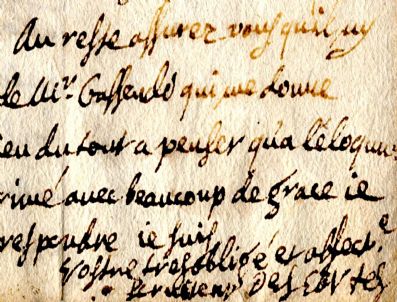 Au reste assurez vous qu'il n'y
de Mr Gassendo qui me donne
ieu du tout a penser qu'a l'éloquen
rimé avec beaucoup de grace ie
respondre ie suis
Vostre tresobligé et affect.e
DESCARTES